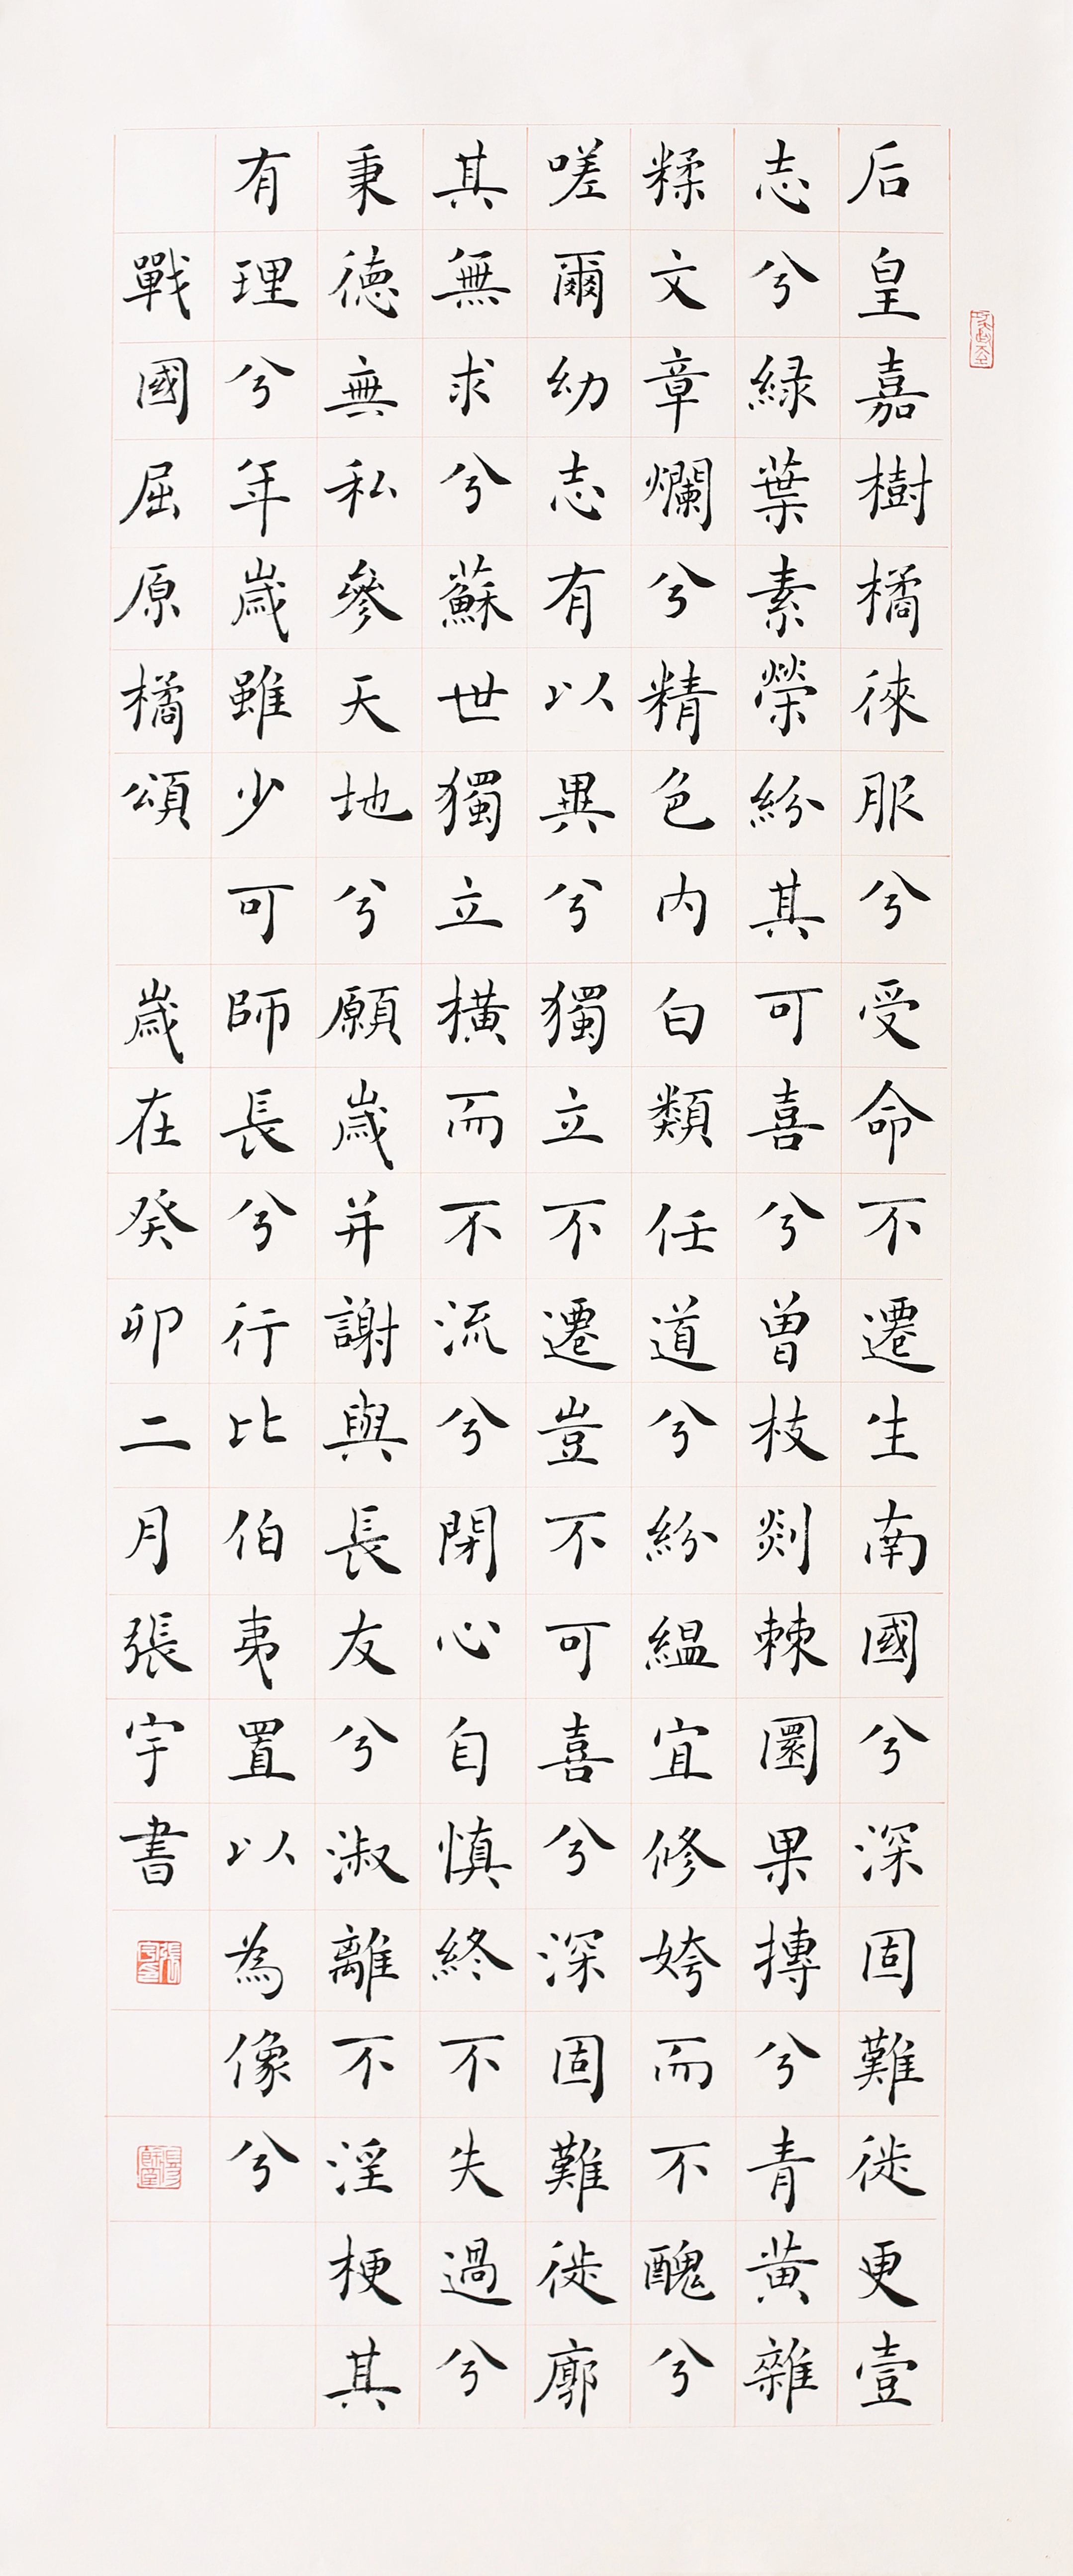 后皇嘉樹橘徠服兮受命不遷生南國兮深固難徙更壹
志兮緑葉素榮紛其可喜兮曽枝剡棘圜果摶兮青黄雜
糅文章爛兮精色内白類任道兮紛緼宜修姱而不醜兮
嗟爾幼志有以異兮獨立不遷豈不可喜兮深固難徙廓
其無求兮蘇世獨立橫而不流兮閉心自慎終不失過兮
秉德無私參天地兮願歲并謝與長友兮淑離不淫梗其
有理兮年歲雖少可師長兮行比伯夷置以為像兮
戰國屈原橘頌 歲在癸卯二月張宇書